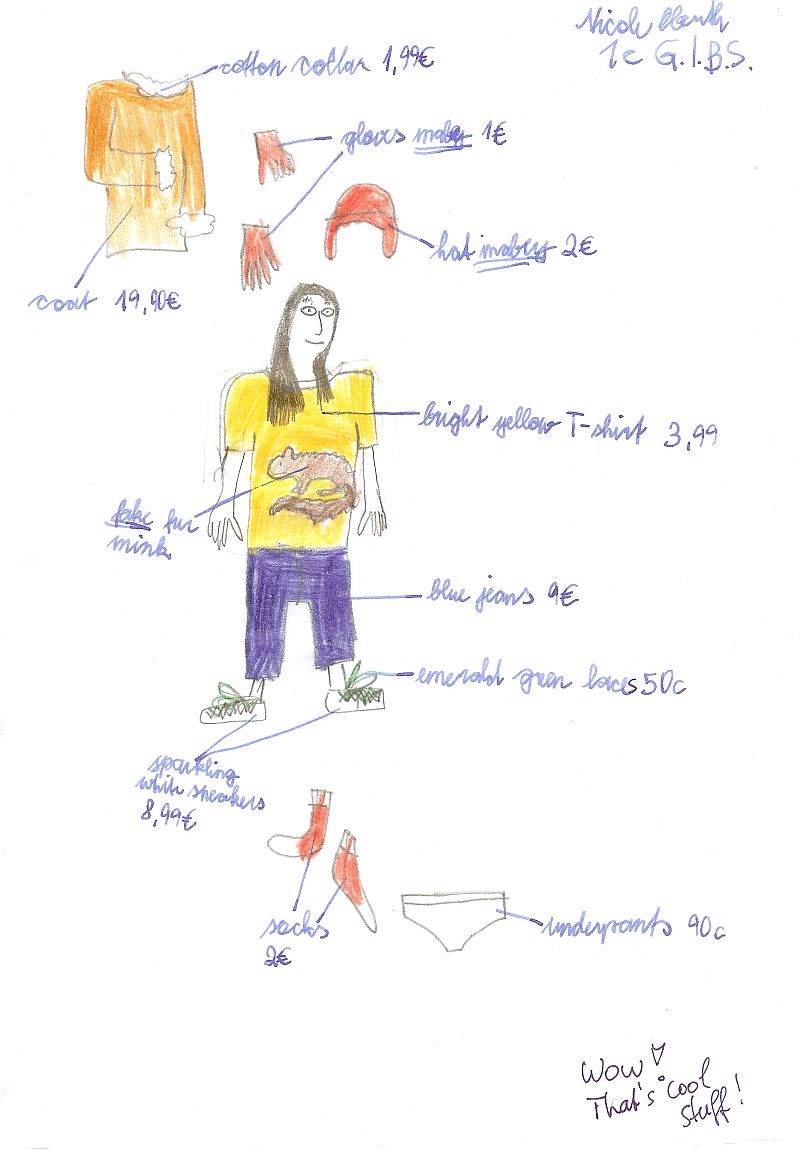 Nicole
1c G.I.B.S.
cotton collar 1,99€
gloves maby 1€
hat mabey 2€
coat 19,90€
bright yellow T-shirt 3,99
fake fur
mink
blue jeans 9€
emerald green laces 50c
sparkling
white sneakers
8,99€
socks
2€
underpants 90c
Wow
That's cool
stuff!